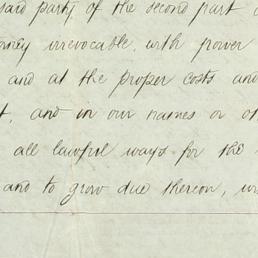 said party of the second part
irrevocable, with power
and at the proper costs and
and in our names or
all lawful ways for the
and to grow due thereon,